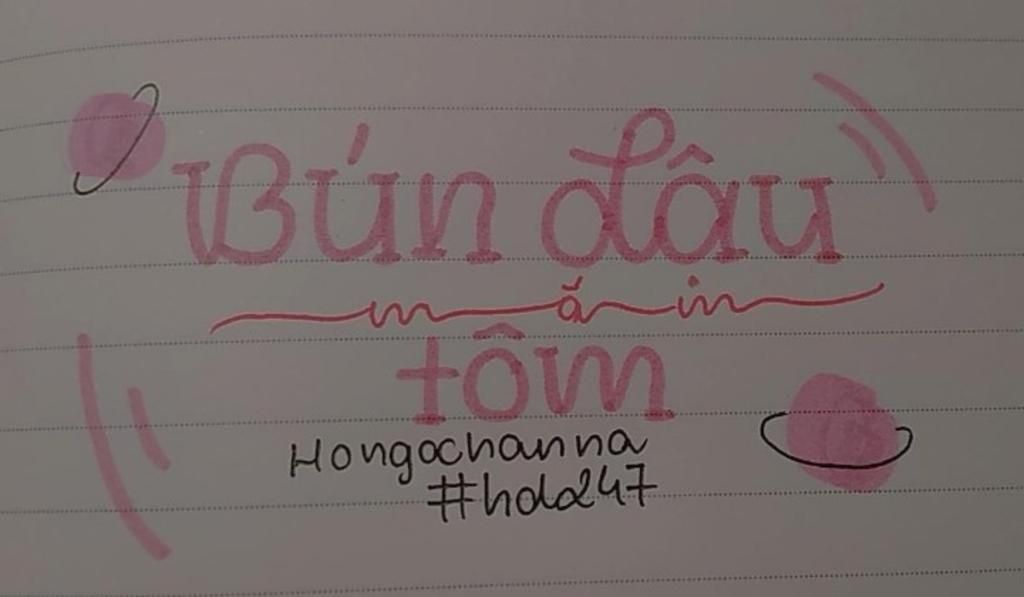 Bún đâu
mắm
tôm
Hongochanna
#hda247